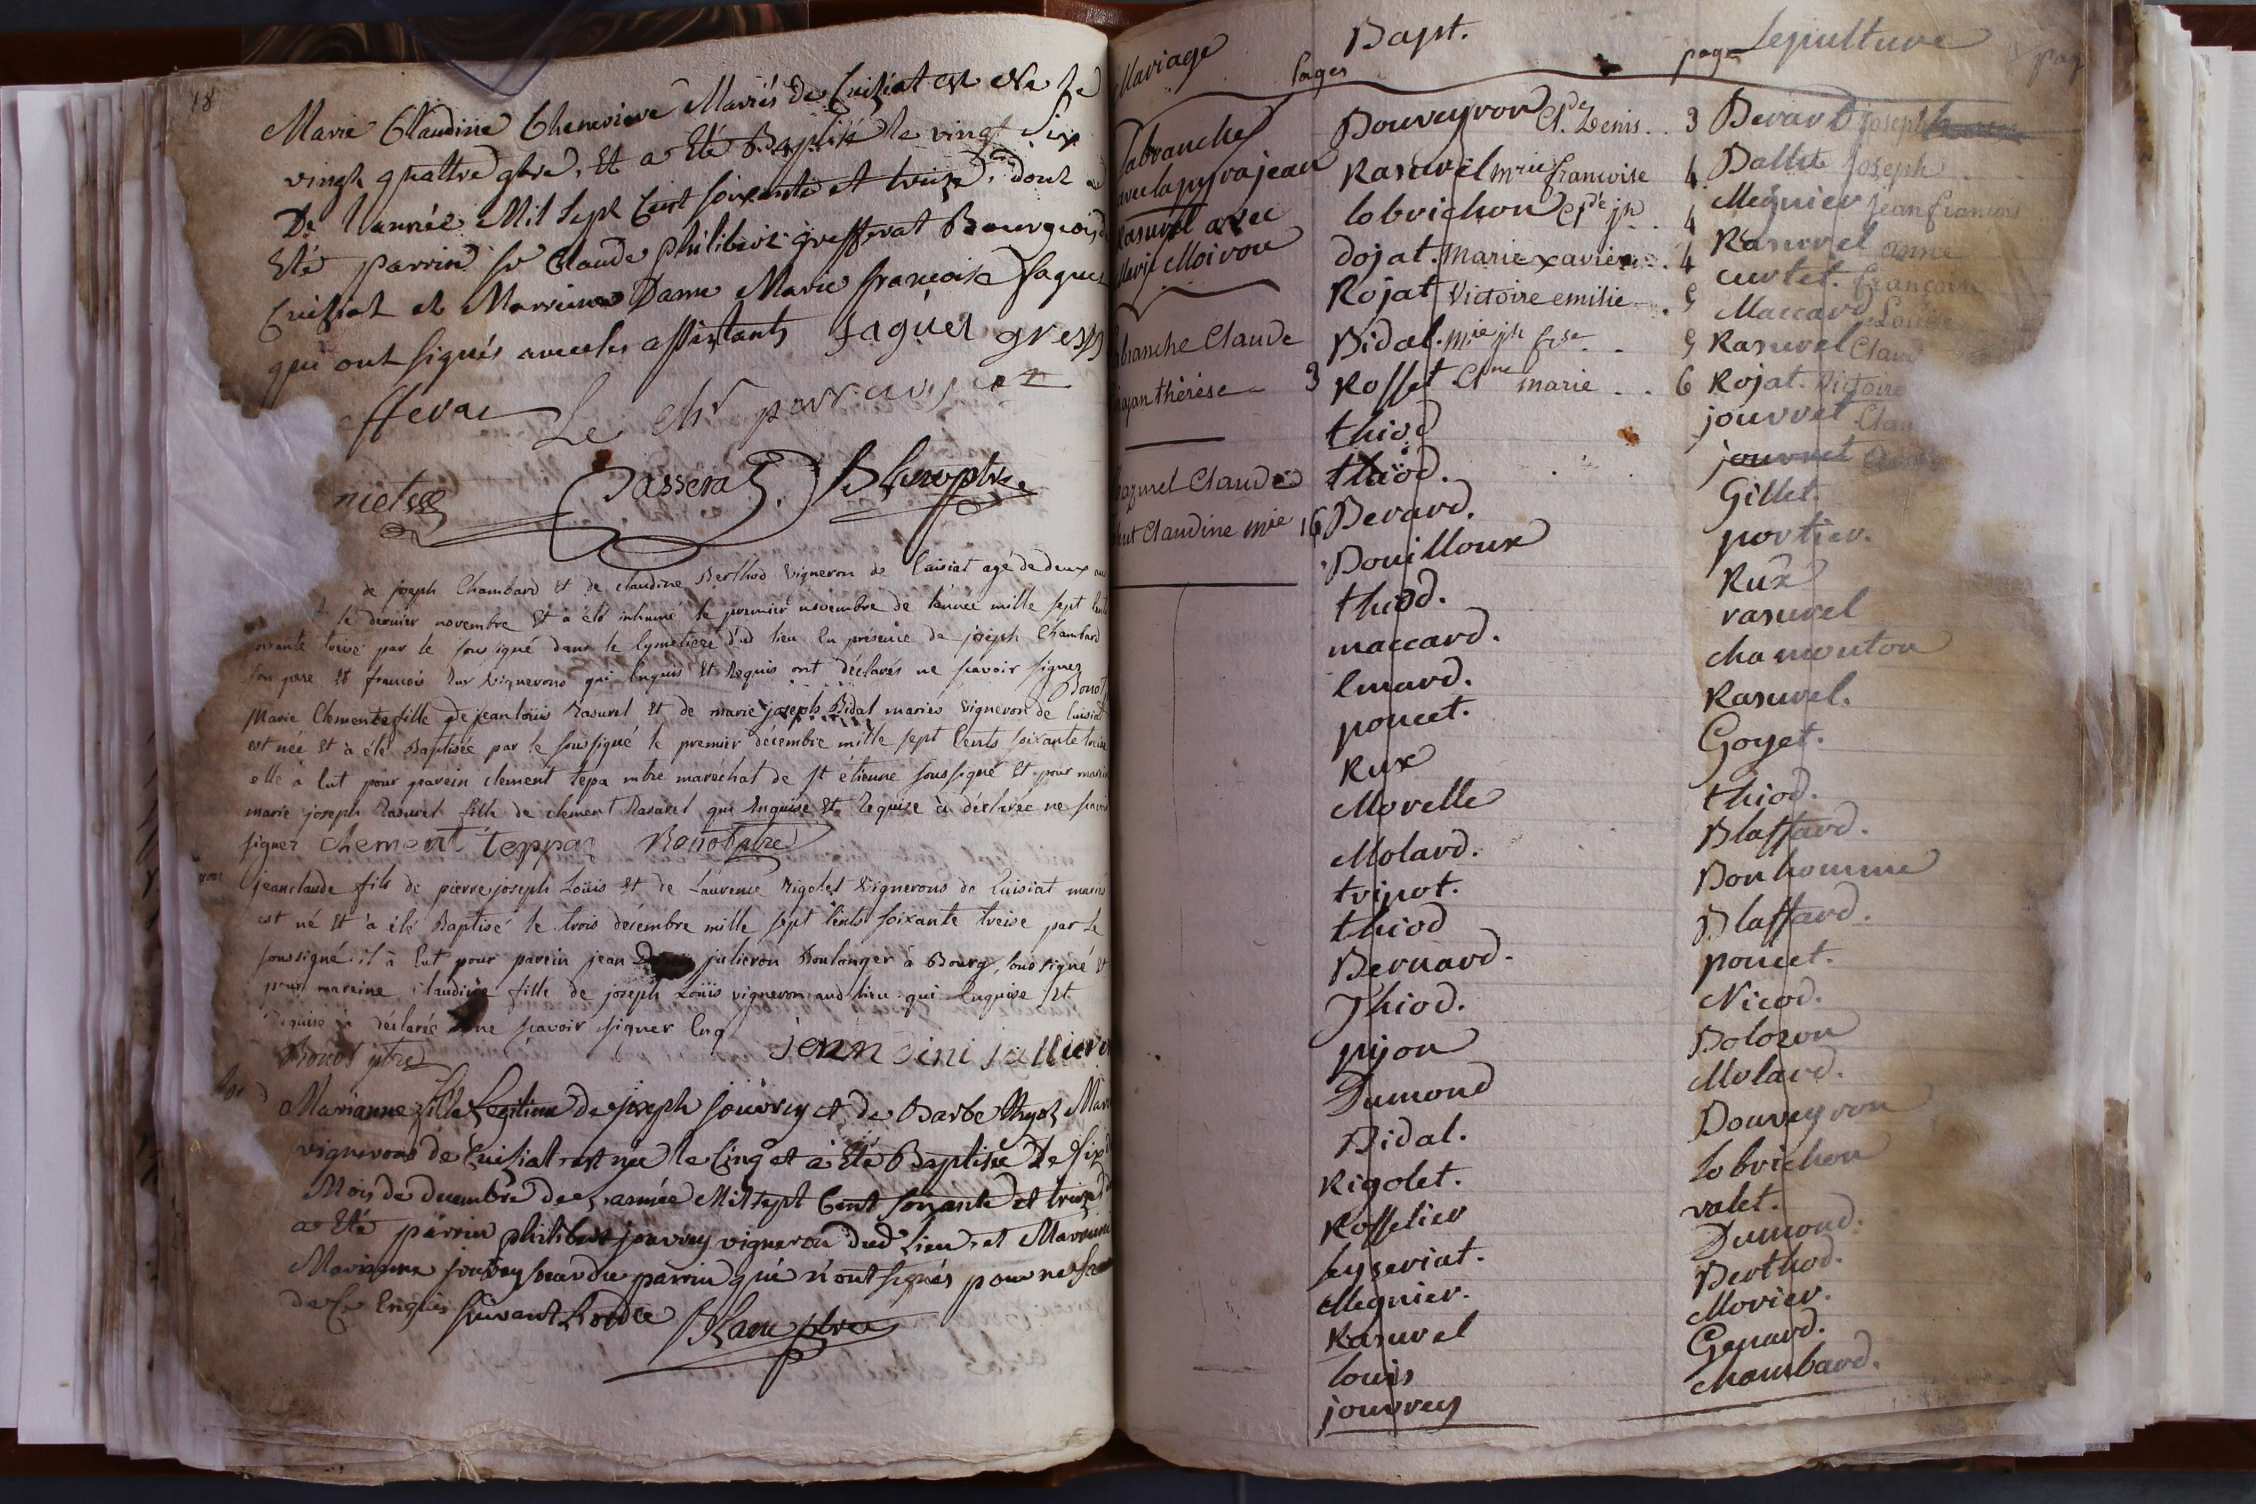 18
Marie Claudine Chenevieve Mariés de Cuiziat est Né Le
vingt quattre 9bre, Et a Eté Baptisé le vingt Six
De l'année Mil Sept Cent soixante et treize, dont a
Eté parrin Sr Claude philibert greffferat Bourgeois de
Cuiziat et Marrine Dame Marie françoise Jaquet
qui ont signés avec les assistants Jaguet greff
fferat Le chr
Passerat. Blanc ptre
de joseph Chambard et de claudine Berthod vigneron de Cuisiat agé de deux ans
le dernier novembre et à été inhumé le premier novembre de l'année mille sept cents
soixante treise par le soussigné dans le cymetiere dud lieu En présence de joseph Chambard
son pere et francois Rux vignerons qui Enquis Et Requis ont déclarés ne scavoir signer
Bonot
Marie Clemente fille de jean loüis Rasurel et de marie joseph Bidal mariés vigneron de Cuisiat
est née et à été Baptisée par le soussigné le premier décembre mille sept cents soixante treise
elle à Eut pour parein clement tepa mtre maréchal de st étienne soussigné et pour mareine
marie joseph Rasurel fille de clement Rasurel qui Enquise Et Requise à déclarée ne scavoir
signer Clement teppaz Bonot ptre
jeanclaude fils de pierre joseph Loüis et de Laurence Rigolet vignerons de Cuisiat mariés
est né et à été Baptisé le trois décembre mille sept cents soixante treise par Le
soussigné il à Eut pour parein jean julieron Boulanger à Bourg, soussigné Et
pour mareine claudine fille de joseph Loüis vigneron aud lieu qui Enquise Et
Requise à déclarée ne scavoir signer Enq
Bonot ptre
Marianne fille Legitime de joseph jouvrey et de Barbe thyot Mariés
vignerons de Cuisiat est née le Cinq et a Eté Baptisée Le Six
Mois de decembre de l'année Mil sept Cent soixante et treize
a Eté parrin philibert jouvrey vigneron dud Lieu, et Marraine
Marianne jouvrey soeur du parrin qui n'ont signés pour ne sca
de ce Enquis suivant L'ordce Blanc ptre
Mariage
Labranche
avec lapyrajean
Rasurel avec
Marie Moiron
labranche Claude
thérèse 3
Claude
Claudine mie 16
Bapt.
Pages
Bouveyron Cl. Denis 3
Rasurel mrie francoise 4
lobrichon Cde jh 4
dojat. Marie xaviere 4
Rojat Victoire emilie 5
Bidal. mie jh fse 5
Rosset Clne marie 6
thiod
thiod.
Berard.
Bouilloux
thiod.
maccard.
Emard.
poncet.
Rux
Morelle
Molard.
tripot.
thiod
Bernard.
Thiod.
pijon
Dumond
Bidal.
Rigolet.
Rosselier
seyseriat.
Megnier.
Rasurel
louis
jouvrey
pages
Sepulture
Berard Joseph
Ballet Joseph
Megnier jean francois
Rasurel anne
curtet. francois
Maccard Louise
Rasurel Claud
Rojat. Victoire
jouvret Clau
jouvret
Gillet.
portier.
Rux
rasurel
chamouton
Rasurel.
Goyet.
thiod.
Blaffard.
Bonhomme
Blaffard.
poncet.
Nicod.
Bolozon
Molard.
Bouveyron
lobrichon
valet.
Dumond.
Berthod.
Morier.
Genard.
chambard.